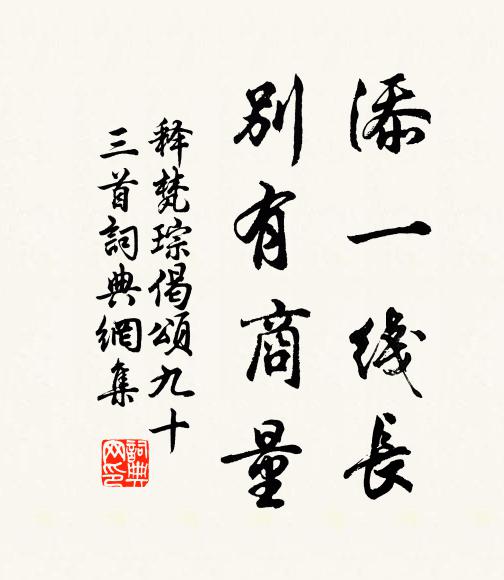 添一线長
別有商量
释梵琮偈頌九十
三首詞典網集
詞典网印